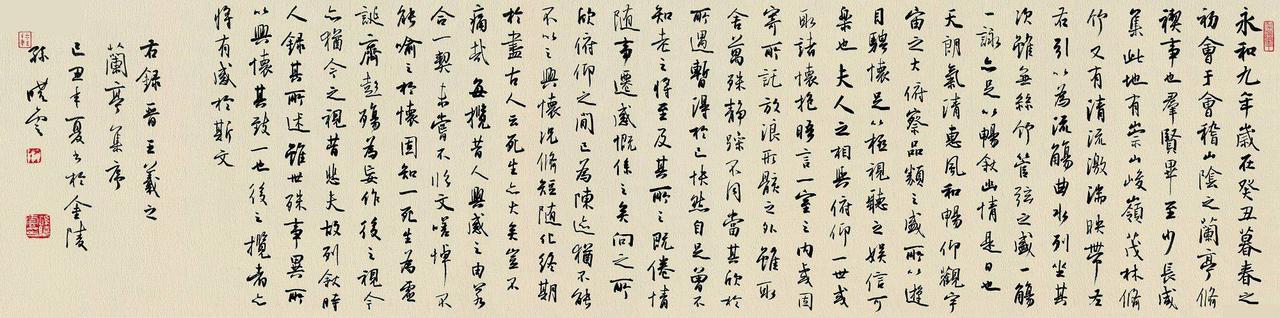 永和九年歲在癸丑暮春之
初會于會稽山陰之蘭亭脩
禊事也羣賢畢至少長咸
集此地有崇山峻嶺茂林脩
竹又有清流激湍映帶左
右引以為流觴曲水列坐其
次雖無絲竹管弦之盛一觴
一詠亦足以暢敘幽情是日也
天朗氣清惠風和暢仰觀宇
宙之大俯察品類之盛所以遊
目騁懷足以極視聽之娛信可
樂也夫人之相與俯仰一世或
取諸懷抱晤言一室之內或因
寄所託放浪形骸之外雖取
舍萬殊靜躁不同當其欣於
所遇暫得於己快然自足曾不
知老之將至及其所之既倦情
隨事遷感慨係之矣向之所
欣俯仰之間已為陳迹猶不能
不以之興懷況脩短隨化終期
於盡古人云死生亦大矣豈不
痛哉每攬昔人興感之由若
合一契未嘗不臨文嗟悼不
能喻之於懷固知一死生為虛
誕齊彭殤為妄作後之視今
亦猶今之視昔悲夫故列敘時
人錄其所述雖世殊事異所
以興懷其致一也後之攬者亦
將有感於斯文
右錄晉王羲之
蘭亭集序
己丑年夏書於金陵
孫曉雲